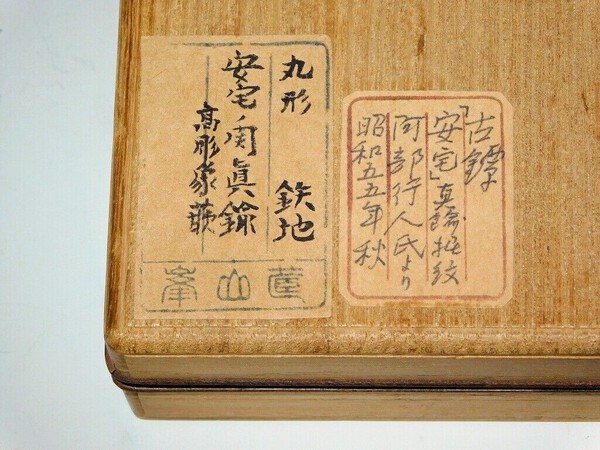 古鐔
「安宅」真鍮据紋
阿部行人氏より
昭和五五年秋
丸形 鉄地
安宅ノ関眞鍮
高彫象嵌